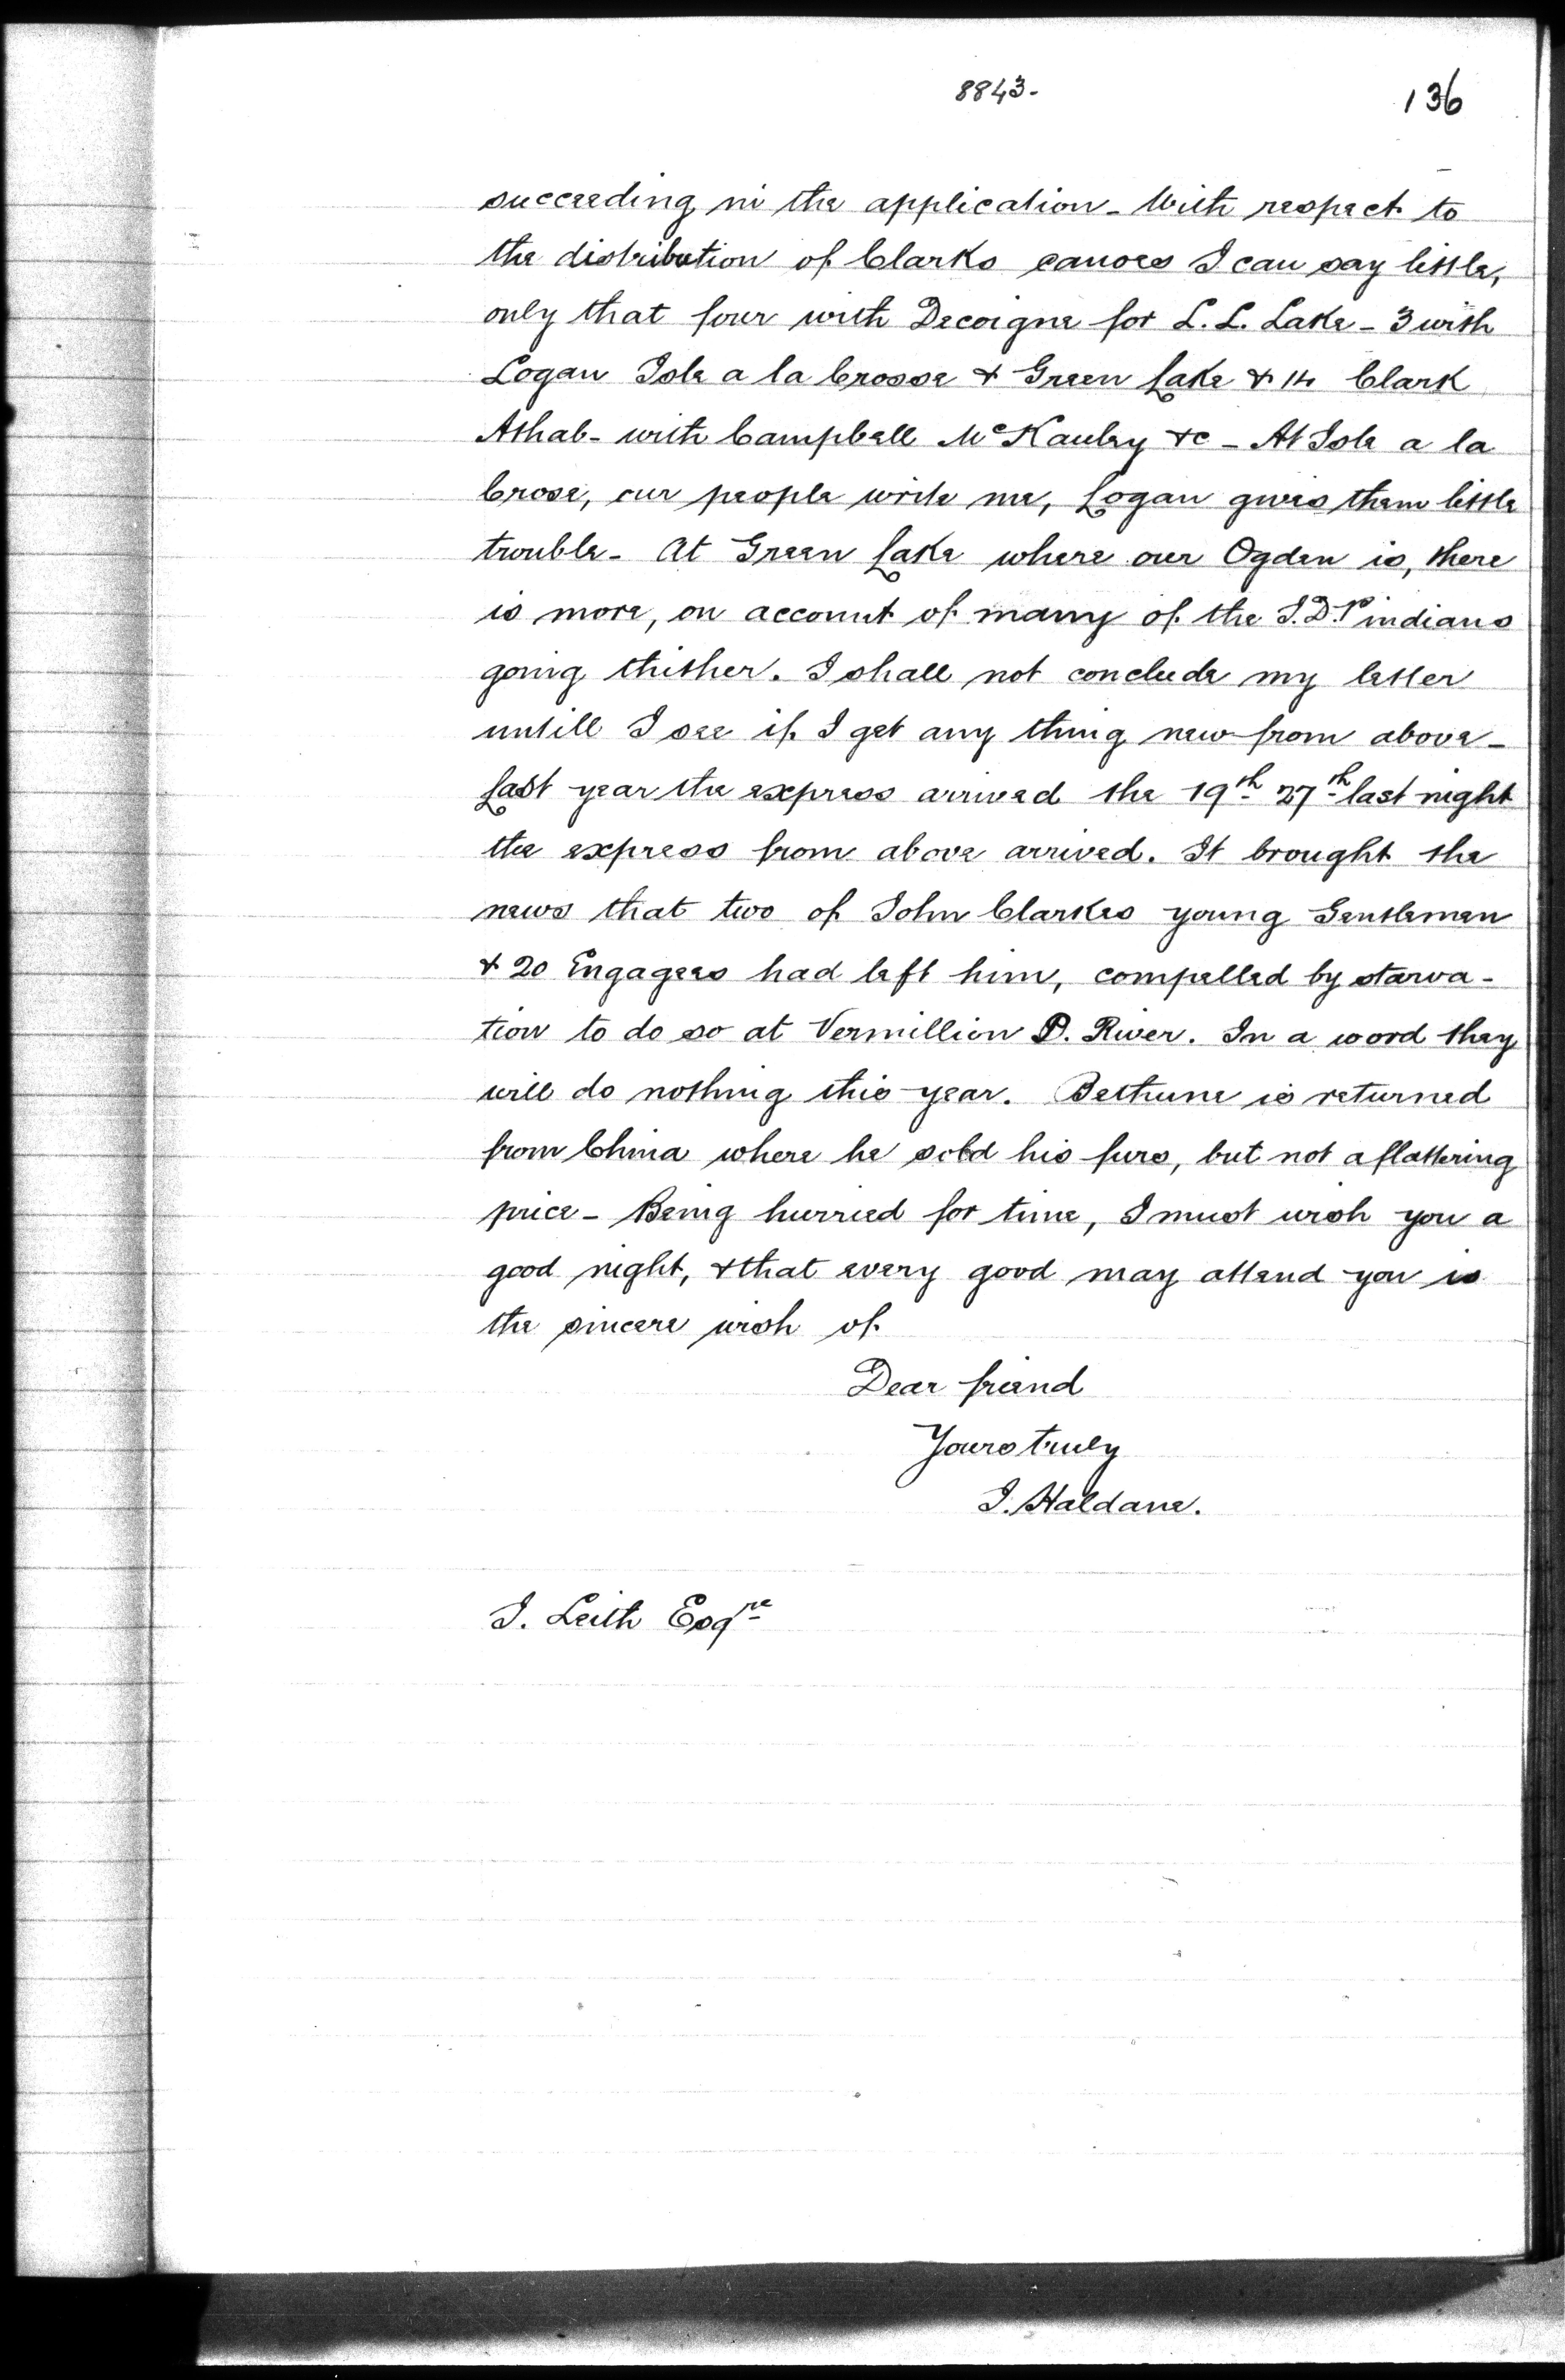 8843-
136
succeeding in the application - With respect to
the distribution of Clarks canoes I can say little,
only that four with Decoigne for L. L. Lake - 3 with
Logan Isle a la Crosse & Green Lake & 14 Clark
Athab - with Campbell McKauley &c - At Isle a la
Crose, our people write me, Logan gives them little
trouble - At Green Lake where our Ogden is, there
is more, on account of many of the I. D. P indians
going thither. I shall not conclude my letter
untill I see if I get any thing new from above -
Last year the express arrived the 19th 27th last night
the express from above arrived. It brought the
news that two of John Clarkes young Gentlemen
& 20 Engagees had left him, compelled by starva-
tion to do so at Vermillion P. River. In a word they
will do nothing this year. Bethune is returned
from China where he sold his furs, but not a flattering
price - Being hurried for time, I must wish you a
good night, & that every good may attend you is
the sincere wish of
Dear friend
Yours truly
J. Haldane.
J. Leith Esqre